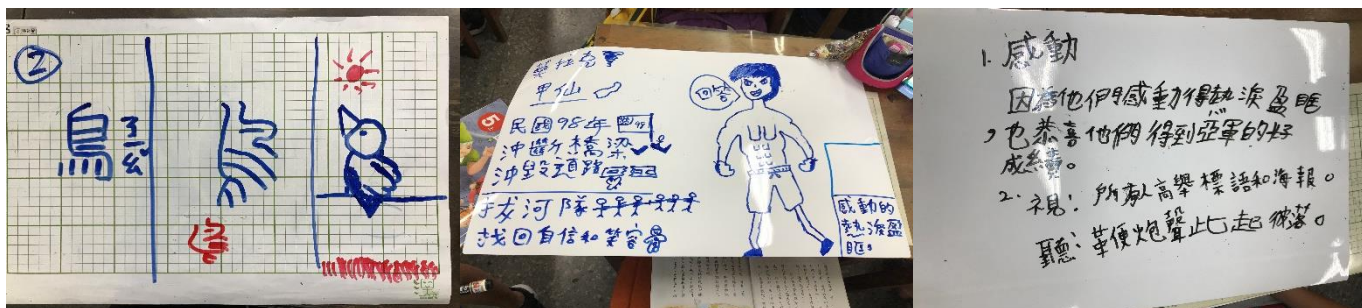 ②
鳥
ㄋㄧㄠˇ
莫拉克
甲仙
民國98年
沖斷橋梁
沖毀道路
拔河隊
找回自信和笑容
回答
感動的
熱淚盈
眶。
5
1. 感動
因為他們感動得熱淚盈眶
,也恭喜他們得到亞軍的好
成績。
2. 視：所有人高舉標語和海報。
聽：鞭炮聲此起彼落。